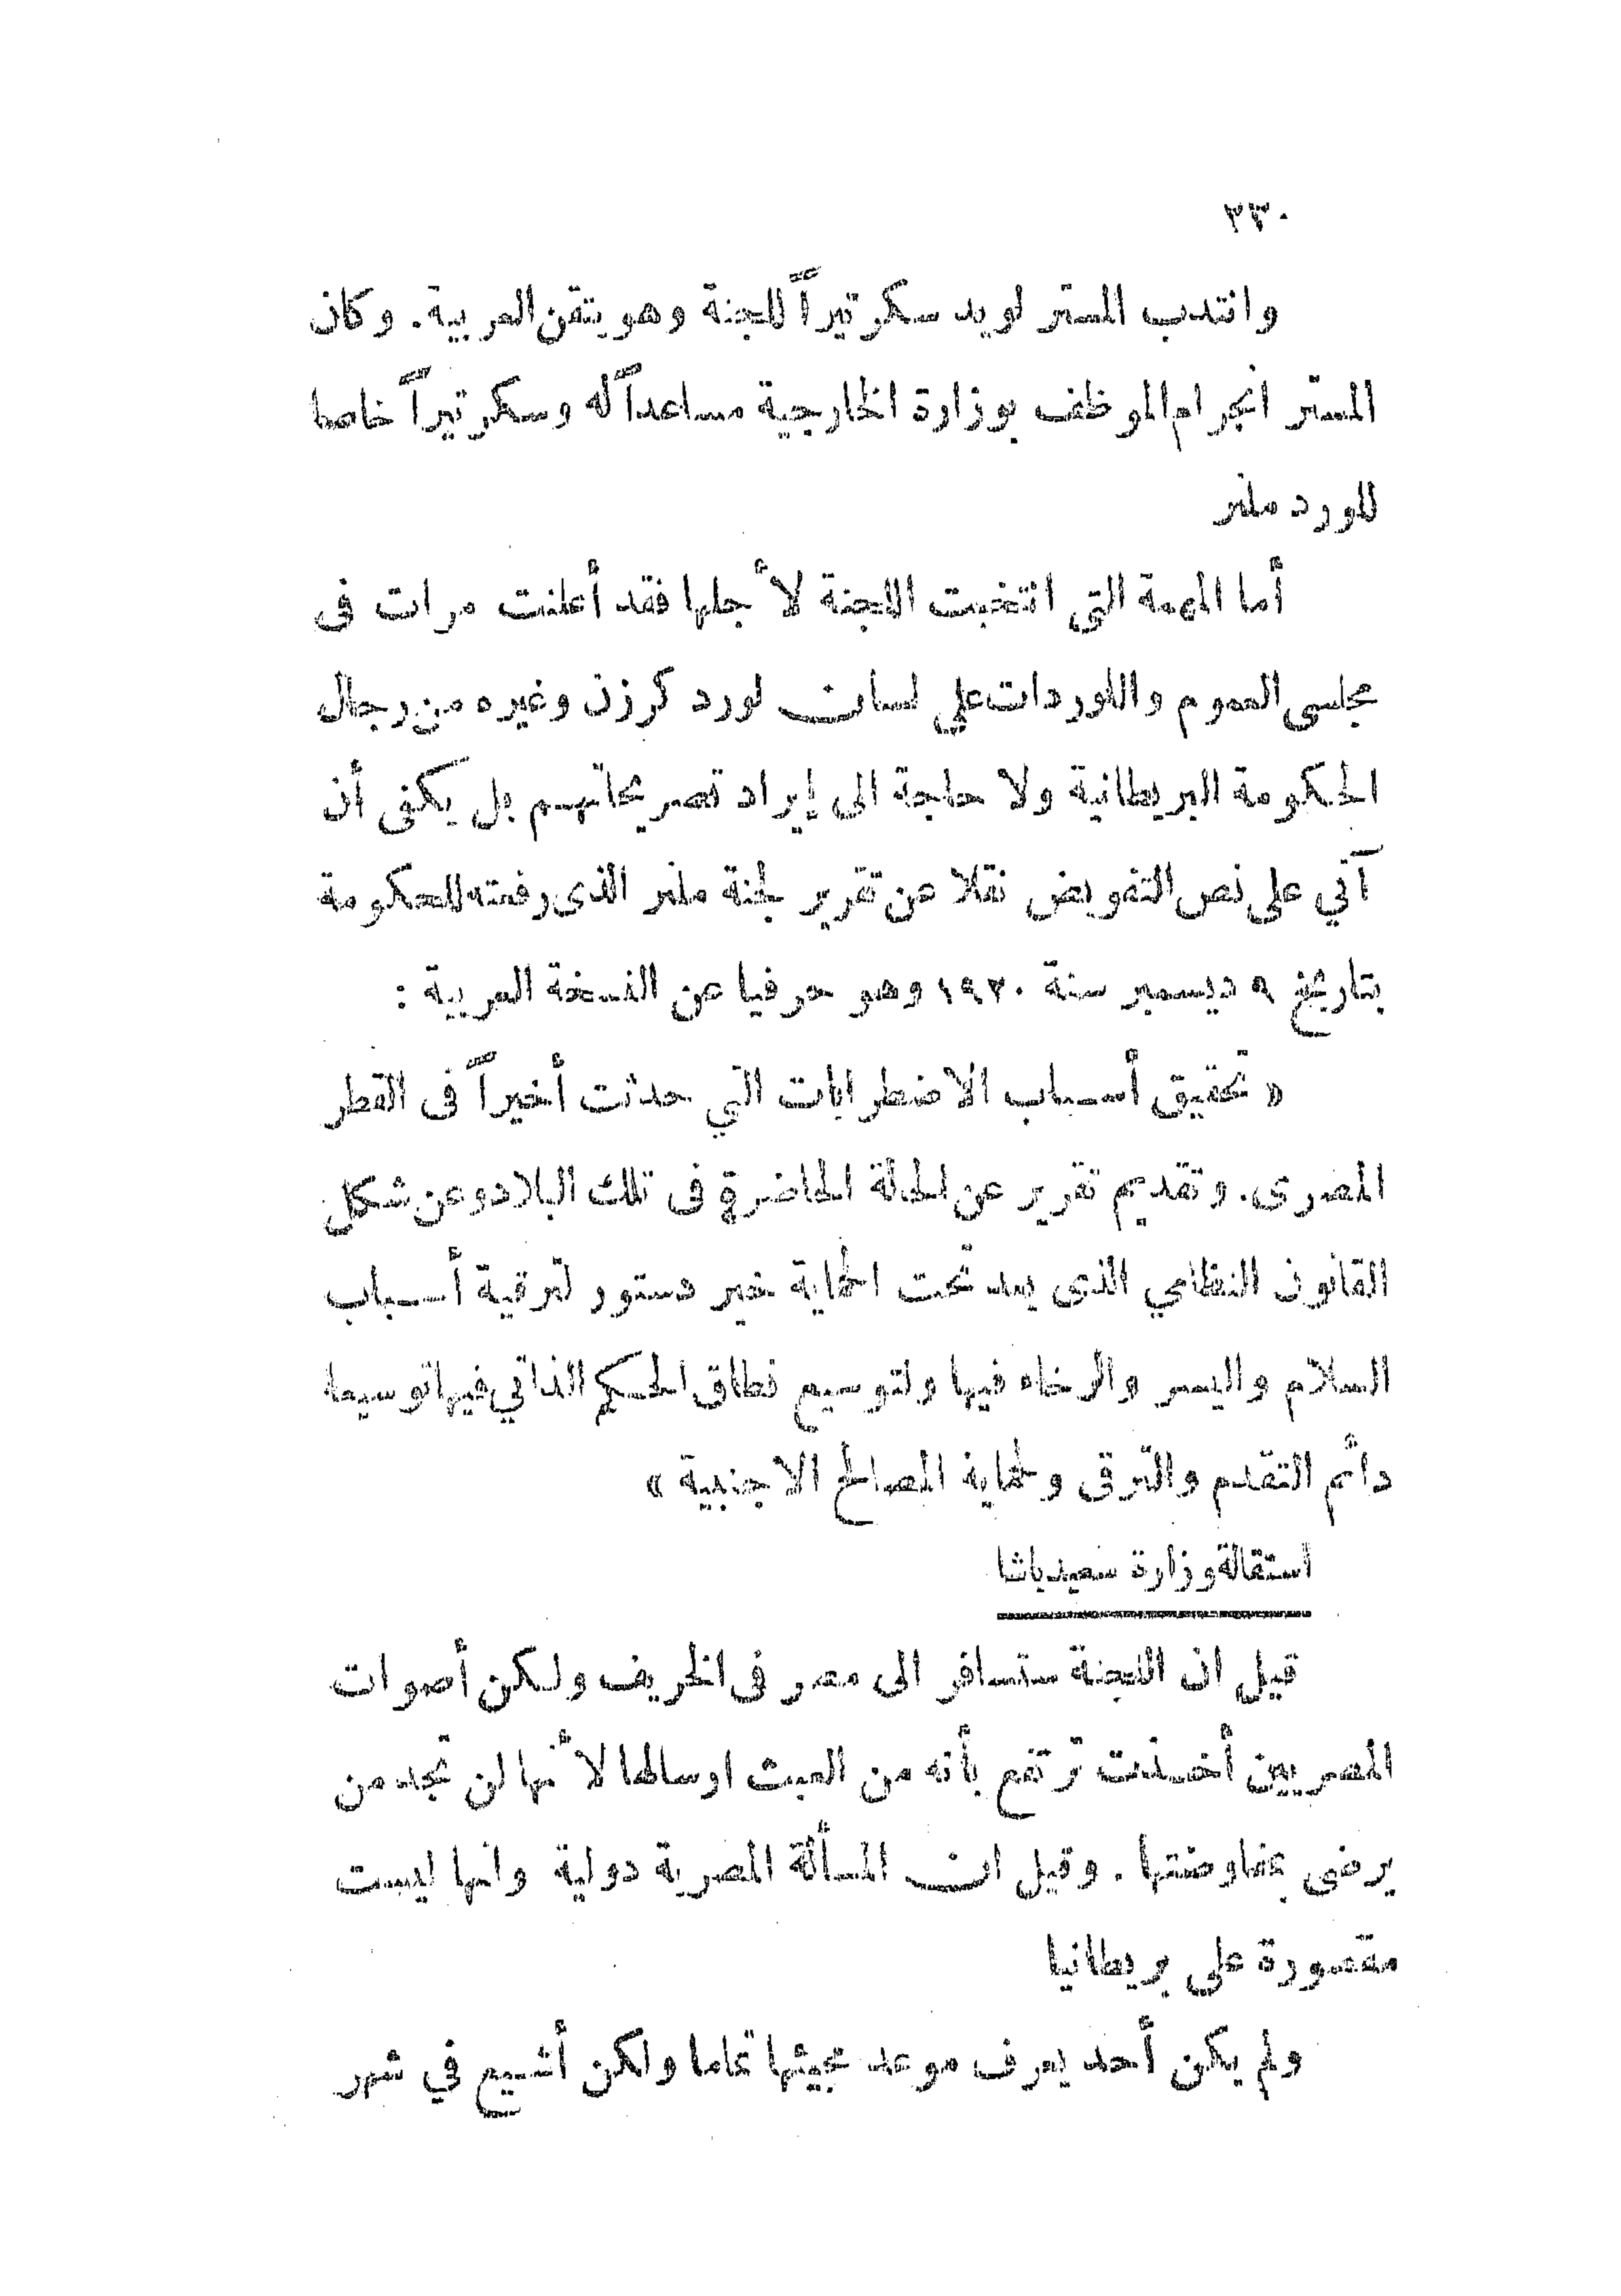 ٢٣٠
وانتدب المستر لويد سكرتيراً للجنة وهو يتقن العربية. وكان
المستر انجرام الموظف بوزارة الخارجية مساعداً له وسكرتيراً خاصا
للورد ملنر
أما المهمة التى انتخبت اللجنة لأجلها فقد أعلنت مرات فى
مجلسى العموم واللوردات على لسان لورد كرزن وغيره من رجال
الحكومة البريطانية ولا حاجة الى إيراد تصريحاتهم بل يكفى أن
آتي على نص التفويض نقلا عن تقرير لجنة ملنر الذى رفعته للحكومة
بتاريخ ٩ ديسمبر سنة ١٩٢٠ وهو حرفيا عن النسخة العربية :
« تحقيق أسباب الاضطرابات التي حدثت أخيراً فى القطر
المصرى. وتقديم تقرير عن الحالة الحاضرة فى تلك البلاد وعن شكل
القانون النظامي الذى يعد تحت الحماية خير دستور لترقية أسباب
السلام واليسر والرخاء فيها ولتوسيع نطاق الحكم الذاتي فيها توسيعا
دائم التقدم والترقى ولحماية المصالح الاجنبية »
استقالة وزارة سعيد باشا
قيل ان اللجنة ستسافر الى مصر فى الخريف ولكن أصوات
المصريين أخذت ترتفع بأنه من العبث ارسالها لأنها لن تجد من
يرضى بمفاوضتها . وقيل ان المسألة المصرية دولية وانها ليست
مقصورة على بريطانيا
ولم يكن أحد يعرف موعد مجيئها تماما ولكن أشيع في شهر